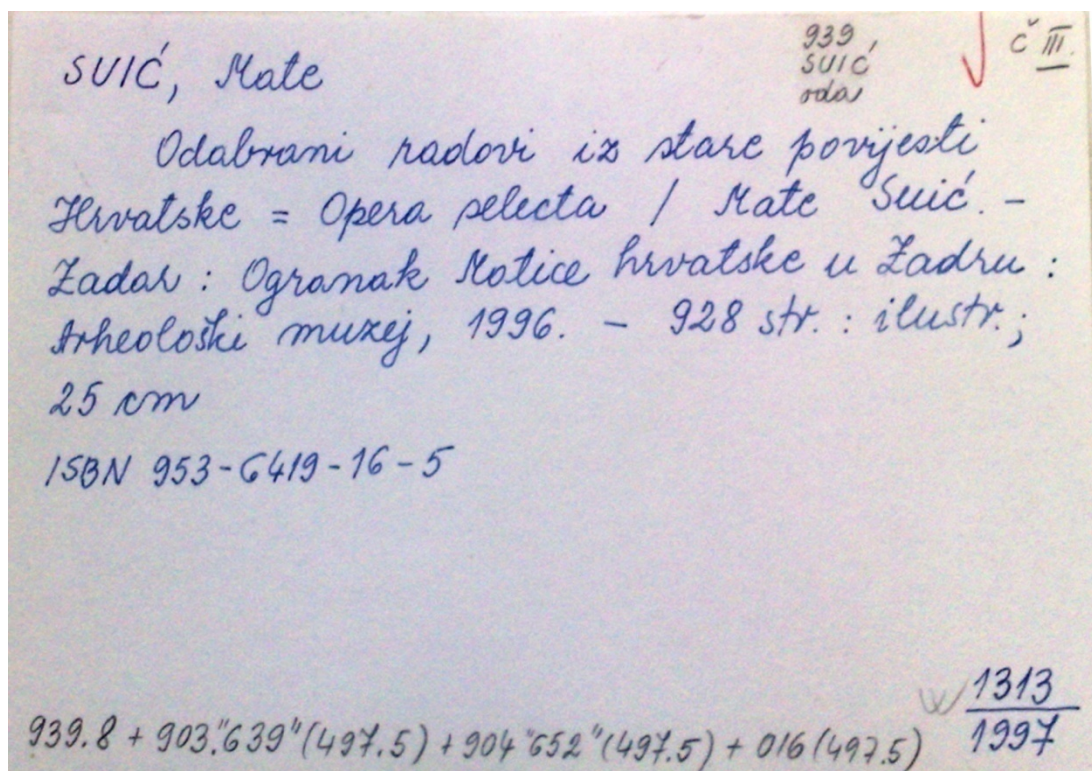 939
SUIĆ
oda
Č III.
SUIĆ, Mate
Odabrani radovi iz stare povijesti
Hrvatske = Opera selecta / Mate Suić. -
Zadar : Ogranak Matice hrvatske u Zadru :
Arheološki muzej, 1996. - 928 str. : ilustr. ;
25 cm
ISBN 953-6419-16-5
1313
1997
939.8 + 903."639"(497.5) + 904"652"(497.5) + 016(497.5)